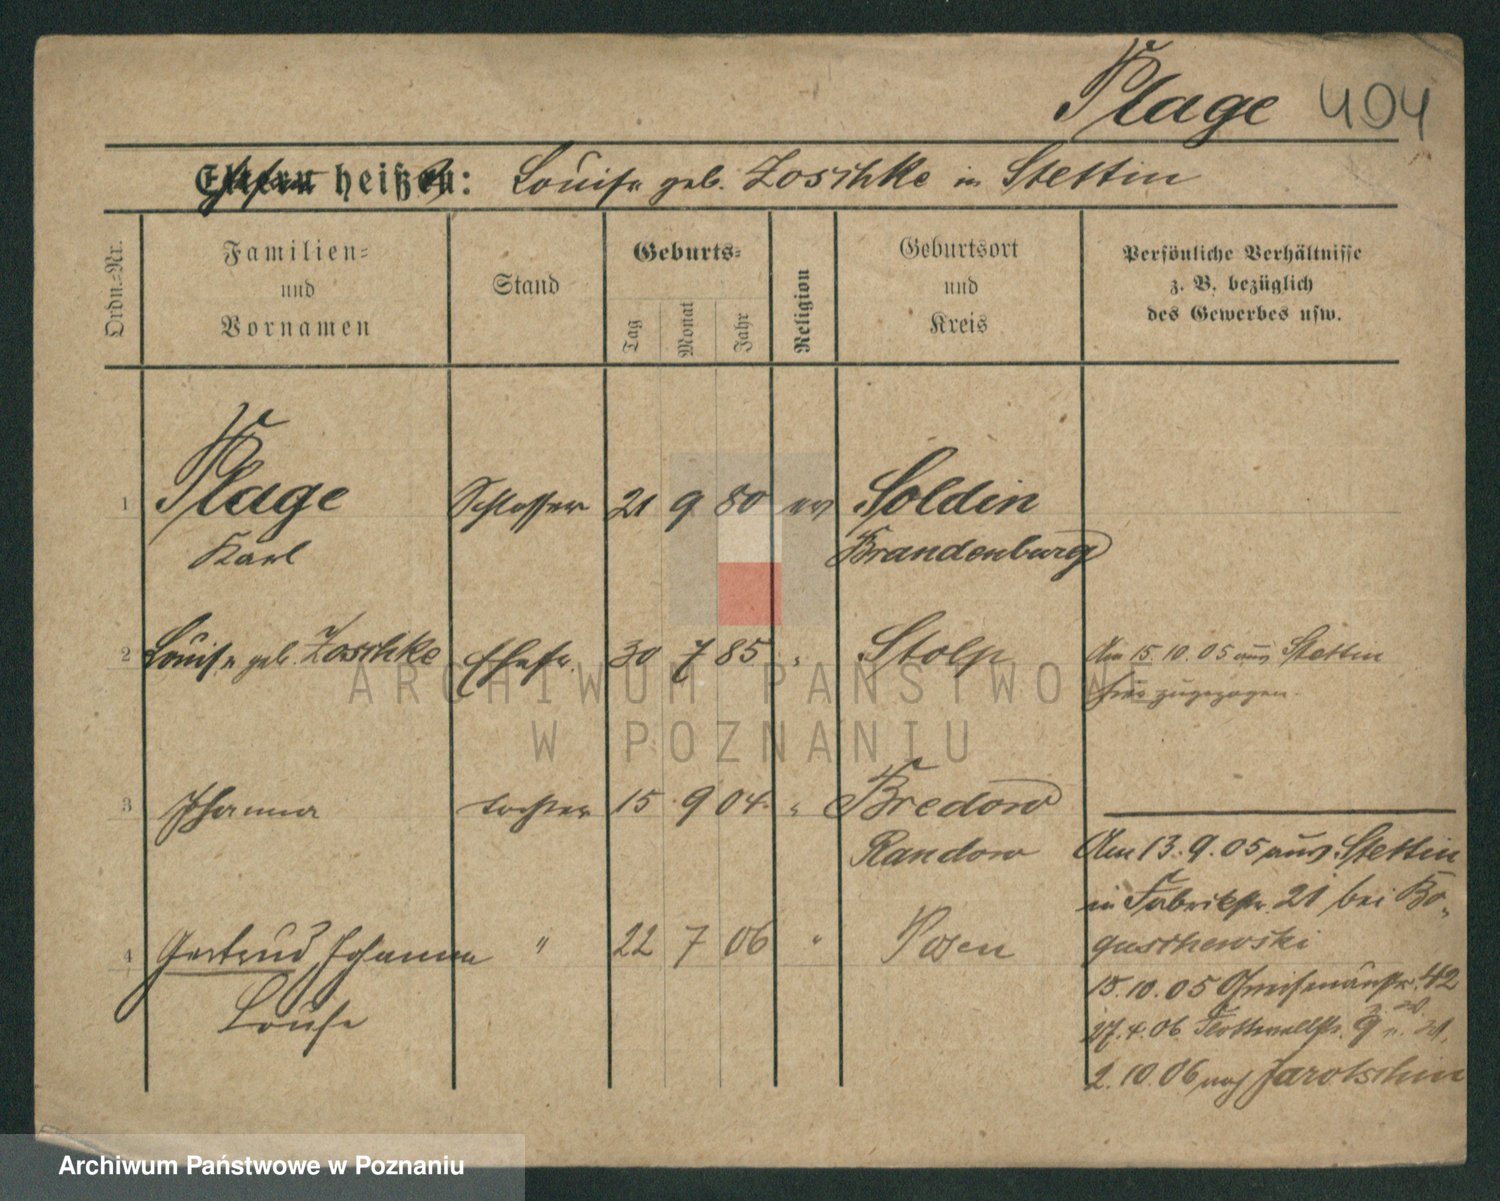 Plage 404
Eltern heißen: Louise geb. Zoschke in Stettin
Ordn.-Nr.
Familien-
und
Vornamen
Stand
Geburts-
Tag
Monat
Jahr
Religion
Geburtsort
und
Kreis
Persönliche Verhältnisse
z. B. bezüglich
des Gewerbes usw.
1 Plage Schlosser 21 9 80 ev Soldin
Karl Brandenburg
2 Louise geb. Zoschke Ehefr. 30 7 85 " Stolp Am 15.10.05 aus Stettin
hier zugezogen.
3 Johanna Tochter 15 9 04 " Bredow
Randow
Am 13.9.05 aus Stettin
in Fabrikstr. 21 bei Bo-
guschewski
4 Gertrud Johanna " 22 7 06 " Posen
Louise
15.10.05 Gneisenaustr. 42
27.4.06 Flottwellstr. 9
2.10.06 nach Jarotschin
ARCHIWUM PAŃSTWOWE
W POZNANIU
Archiwum Państwowe w Poznaniu